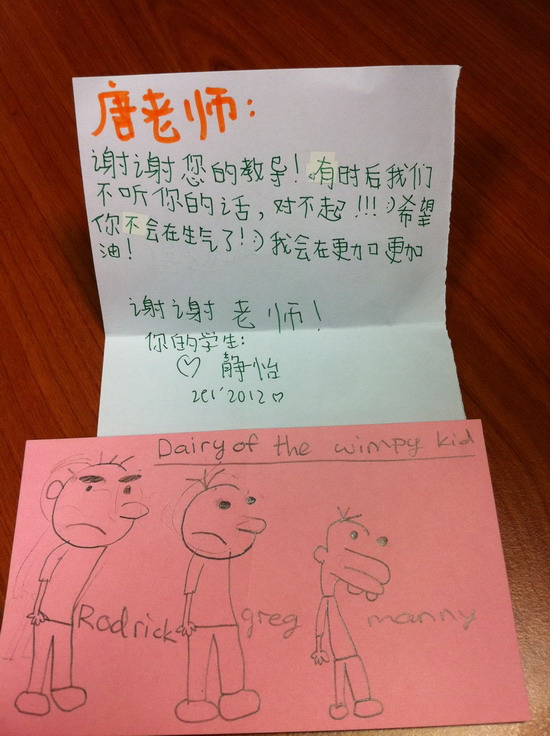 唐老师:
谢谢您的教导! 有时后我们
不听你的话, 对不起!!! :)希望
你不会在生气了! :) 我会在更加更加
油!
谢谢老师!
你的学生:
♡ 静怡
2012 ♡
Dairy of the wimpy kid
Rodrick greg manny